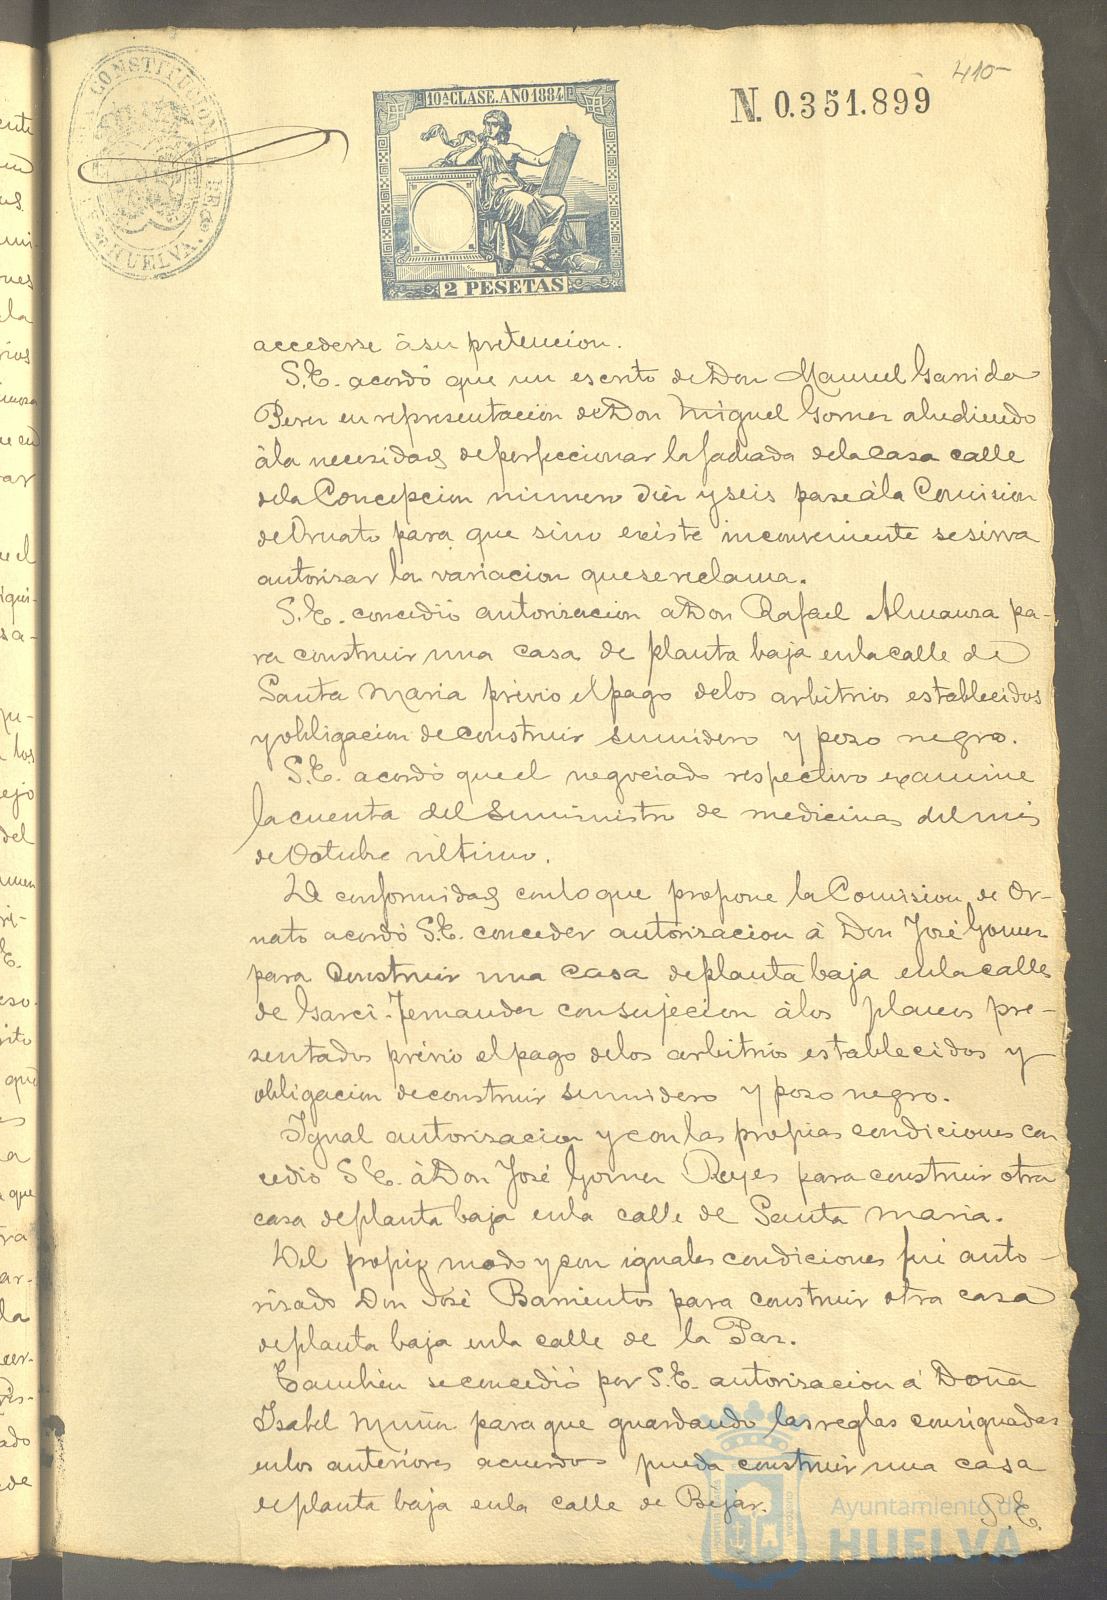 410
N. 0.351.899
CONSTITUCION
HUELVA.
10ª CLASE. AÑO 1884
2 PESETAS
accederse á su pretencion.
S.E. acordó que un escrito de Don Manuel Garrido
Perez en representacion de Don Miguel Gomez aludiendo
á la necesidad de perfeccionar la fachada de la casa calle
de la Concepcion número diez y seis pase á la Comision
de Ornato para que sino existe inconveniente se sirva
autorizar la variacion que se reclama.
S.E. concedió autorizacion a Don Rafael Almansa pa-
ra construir una casa de planta baja en la calle de
Santa Maria prévio el pago de los arbitrios establecidos
y obligacion de construir sumidero y pozo negro.
S.E. acordó que el negociado respectivo examine
la cuenta del suministro de medicinas del mes
de Octubre último.
De conformidad con lo que propone la Comision de Or-
nato acordó S.E. conceder autorizacion á Don José Gomez
para construir una casa de planta baja en la calle
de Garci-Fernandez con sujecion á los planos pre-
sentados prévio el pago de los arbitrios establecidos y
obligacion de construir sumidero y pozo negro.
Igual autorizacion y con las propias condiciones con
cedió S.E. á Don José Gomez Reyes para construir otra
casa de planta baja en la calle de Santa Maria.
Del propio modo y con iguales condiciones fué auto-
rizado Don José Barrientos para construir otra casa
de planta baja en la calle de la Paz.
Tambien se concedió por S.E. autorizacion á Doña
Isabel Muñiz para que guardando las reglas consignadas
en los anteriores acuerdos pueda construir una casa
de planta baja en la calle de Bejar.
S.E.
Ayuntamiento de
HUELVA